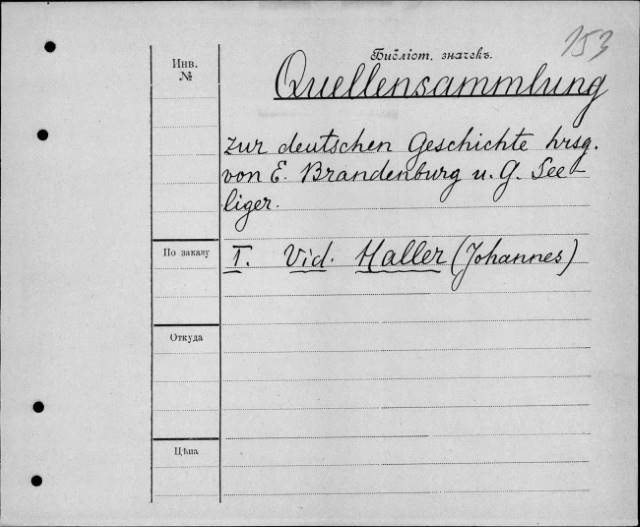 153
Библіот. значекъ.
Инв.
№
Quellensammlung
zur deutschen Geschichte hrsg.
von E. Brandenburg u. G. See-
liger.
По заказу
T. Vid. Haller (Johannes)
Откуда
Цѣна